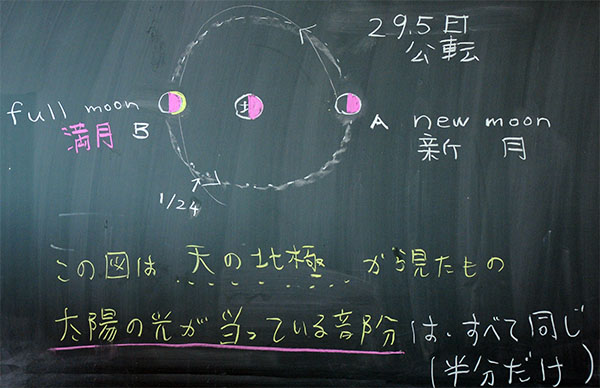 29.5日
公転
full moon
満月 B
土
A new moon
新 月
1/24
この図は 天の北極 から見たもの
太陽の光が 当っている部分は、すべて同じ
(半分だけ)